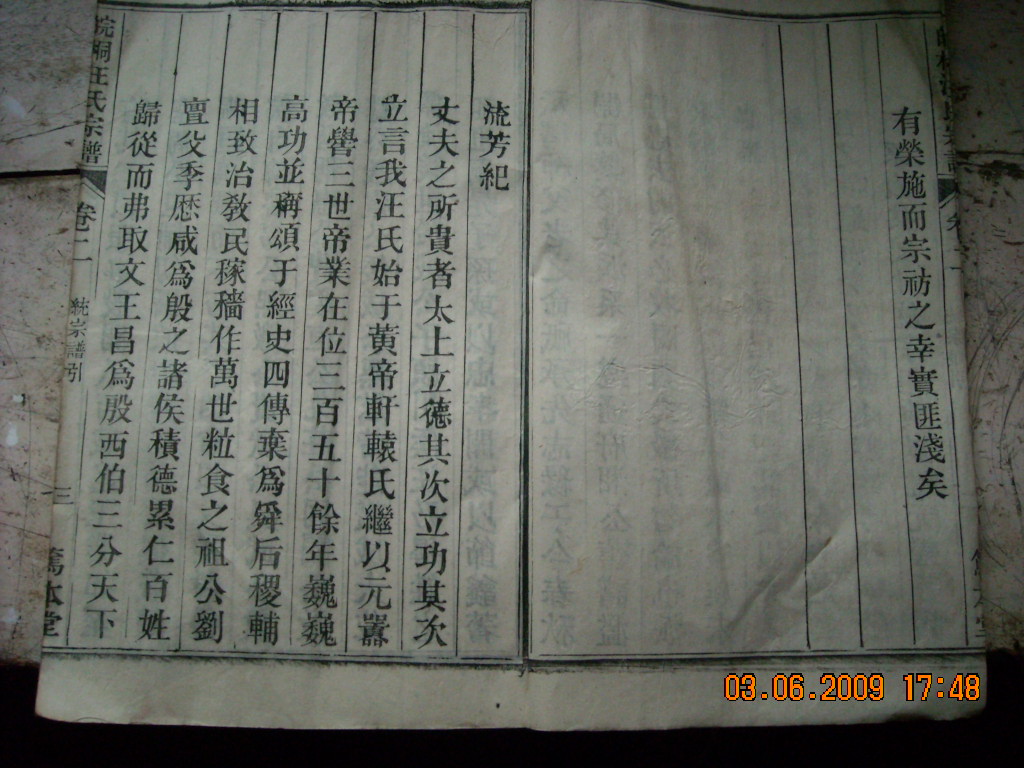 有榮施而宗祊之幸實匪淺矣
流芳紀
丈夫之所貴者太上立德其次立功其次
立言我汪氏始于黃帝軒轅氏繼以元囂
帝嚳三世帝業在位三百五十餘年巍巍
高功並稱頌于經史四傳棄爲舜后稷輔
相致治敎民稼穡作萬世粒食之祖公劉
亶父季歷咸爲殷之諸侯積德累仁百姓
歸從而弗取文王昌爲殷西伯三分天下
皖桐汪氏宗譜
卷二
統宗譜引
三
篤本堂
03.06.2009 17:48